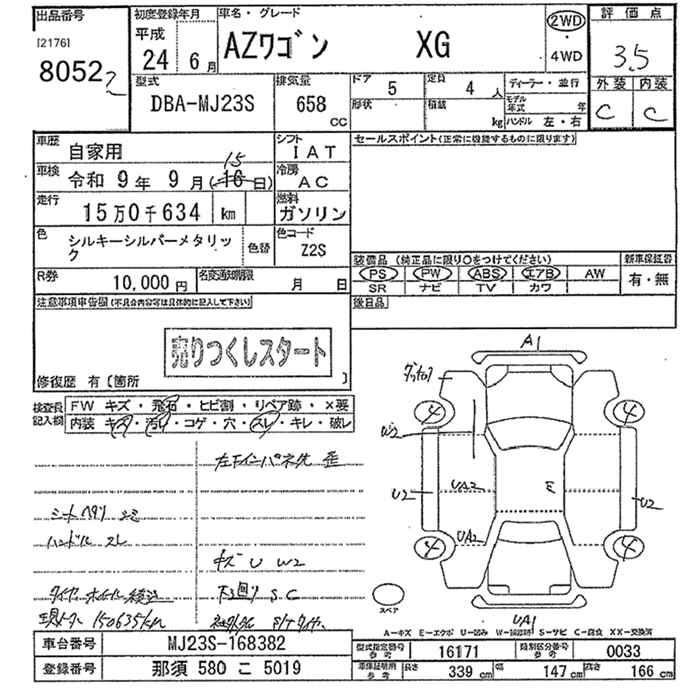 出品番号
[2176]
8052
初度登録年月
平成
24 年 6 月
車名・グレード
AZワゴン XG
2WD
・
4WD
評価点
3.5
外装 内装
C C
型式
DBA-MJ23S
排気量
658
CC
ドア
5
定員
4 人
形状
積載
kg
ディーラー・並行
モデル年式 年
ハンドル 左・右
車歴
自家用
シフト
IAT
車検
令和 9 年 9 月 (16 日)
15
冷房
AC
走行
15万0千634 km
燃料
ガソリン
色
シルキーシルバーメタリック
色替
色コード
Z2S
R券
10,000円
名変通知期限
月 日
セールスポイント(正常に機能するものに限ります)
装備品 (純正品に限り○をつけてください)
新車保証書
PS PW ABS エアB AW
SR ナビ TV カワ
有・無
後日品
注意事項申告欄(不具合内容等は具体的に記入して下さい)
売りつくしスタート
修復歴 有 〔箇所 〕
検査員記入欄
FW キズ・飛石・ヒビ割・リペア跡・×要
内装 キズ・汚れ・コゲ・穴・スレ・キレ・破レ
左下インパネ先 歪
ハンドル スレ
キズ U W2
下廻り S.C
現メーター 150635km
A1
4
4
W2
U2
UA2
E
U2
UA2
4
4
UA1
スペア
A-キズ E-エクボ U-凹み W-補修跡 S-サビ C-腐食 XX-交換済
車台番号
MJ23S-168382
登録番号
那須 580 こ 5019
型式指定番号
参考
16171
類別区分番号
参考
0033
車庫証明用
参考
長さ
339 cm
幅
147 cm
高さ
166 cm